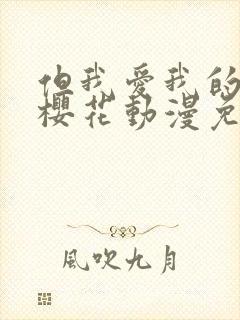 但我愛我的
櫻花動漫免
風吹九月